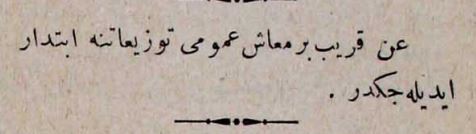 عن قريب بر معاش عمومى توزيعاتنه ابتدار
ايديله جكدر .